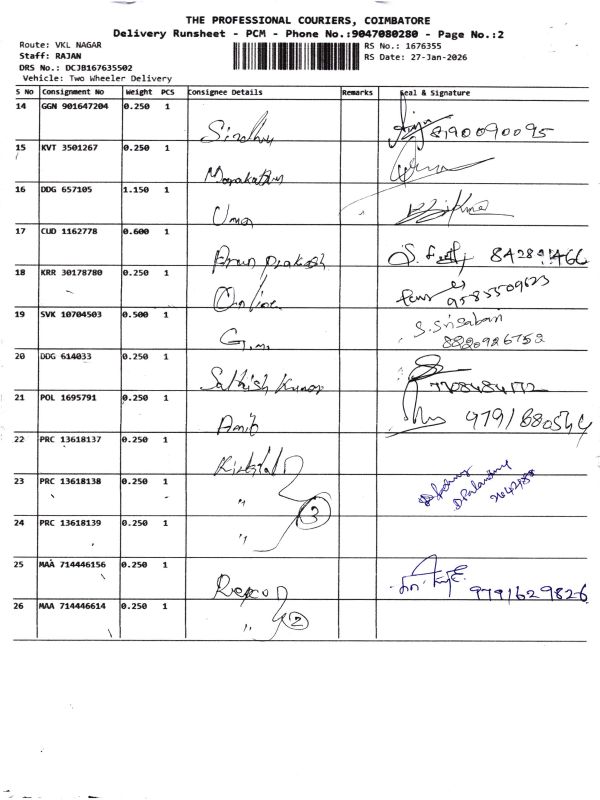 THE PROFESSIONAL COURIERS, COIMBATORE
Delivery Runsheet - PCM - Phone No.:9047080280 - Page No.:2
Route: VKL NAGAR
Staff: RAJAN
DRS No.: DCJB167635502
Vehicle: Two Wheeler Delivery
RS No.: 1676355
RS Date: 27-Jan-2026
S No Consignment No Weight PCS Consignee Details Remarks Seal & Signature
14 GGN 901647204 0.250 1 Sindhu 8190090095
15 KVT 3501267 0.250 1
16 DDG 657105 1.150 1 Uma
17 CUD 1162778 0.600 1 Arun Prakash
18 KRR 30178780 0.250 1 Online 9585509623
19 SVK 10704503 0.500 1 G.M. S. Srisabari
8220926752
20 DDG 614033 0.250 1 Sathish Kumar 7708484172
21 POL 1695791 0.250 1 Amit
22 PRC 13618137 0.250 1
23 PRC 13618138 0.250 1 "
24 PRC 13618139 0.250 1 " 3
25 MAA 714446156 0.250 1 Repco 9791629826
26 MAA 714446614 0.250 1 " 2